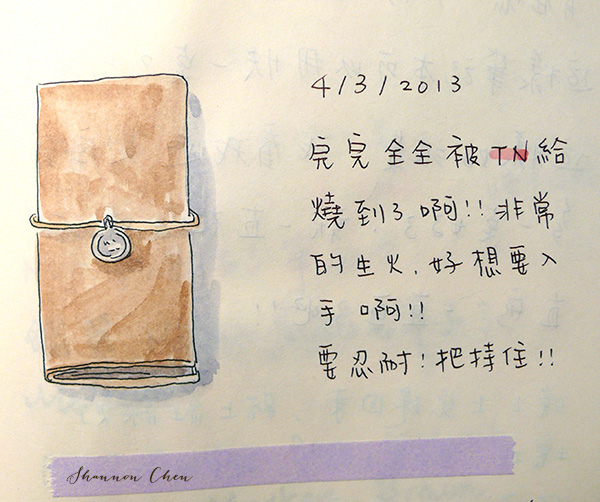 4/3/2013
完完全全被TN給
燒到了啊!!非常
的生火,好想要入
手啊!!
要忍耐!把持住!!
Shannon Chen